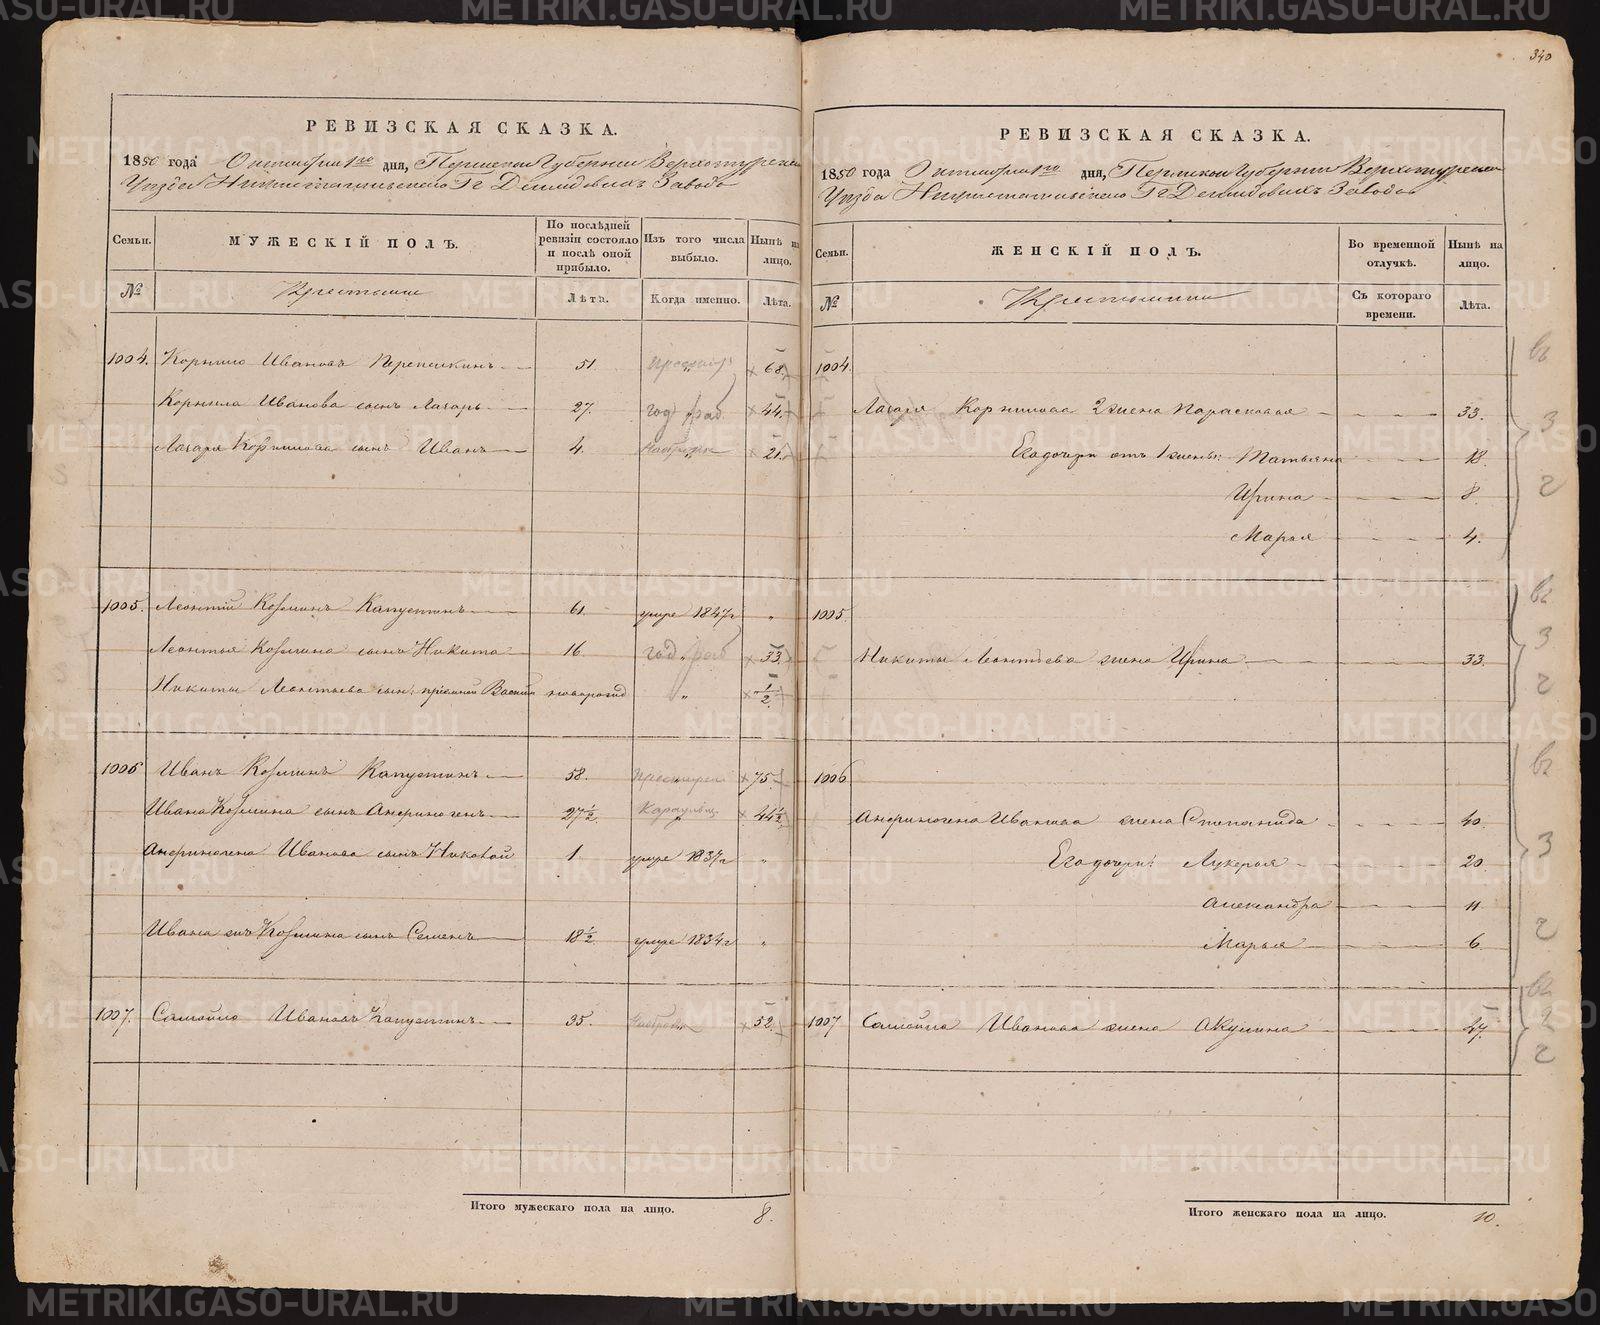 340
РЕВИЗСКАЯ СКАЗКА.
1850 года Октября 1го дня, Пермской Губернии Верхотурскаго
Уезда Нижнетагильскаго Гг Демидовыхъ Завода
Семьи.
МУЖЕСКІЙ ПОЛЪ.
По послѣдней ревизіи состояло и послѣ оной прибыло.
Изъ того числа выбыло.
Нынѣ на лицо.
№
Крестьяне
Лѣта.
Когда именно.
Лѣта.
1004. Корнило Ивановъ Перепелкинъ 51. 68.
Корнила Иванова сынъ Лазарь 27. 44.
Лазаря Корнилова сынъ Иванъ 4. 21.
1005. Леонтій Козминъ Капустинъ 61. умре 1847г "
Леонтья Козмина сынъ Никита 16. 33.
Никиты Леонтьева сынъ пріемной Василій новорожд " 1/2.
1006 Иванъ Козминъ Капустинъ 58. 75.
Ивана Козмина сынъ Андриногенъ 27 1/2. 44 1/2
Андриногена Иванова сынъ Николай 1. умре 1837г "
Ивана Козмина сынъ Семенъ 18 1/2 умре 1834г "
1007. Самойло Ивановъ Капустинъ 35. 52.
Итого мужескаго пола на лицо. 8.
РЕВИЗСКАЯ СКАЗКА.
1850 года Октября 1го дня, Пермской Губернии Верхотурскаго
Уезда Нижнетагильскаго Гг Демидовыхъ Завода
Семьи.
ЖЕНСКІЙ ПОЛЪ.
Во временной отлучкѣ.
Нынѣ на лицо.
№
Крестьянки
Съ котораго времени.
Лѣта.
1004.
Лазаря Корнилова 2 жена Парасковья 33.
Его дочери отъ 1 жены: Татьяна 18.
Ирина 8.
Марья 4.
1005.
Никиты Леонтьева жена Ирина 33.
1006
Андриногена Иванова жена Степанида 40.
Его дочери: Лукерья 20
Александра 11
Марья 6.
1007 Самойла Иванова жена Акулина 47.
Итого женскаго пола на лицо. 10.
METRIKI.GASO-URAL.RU